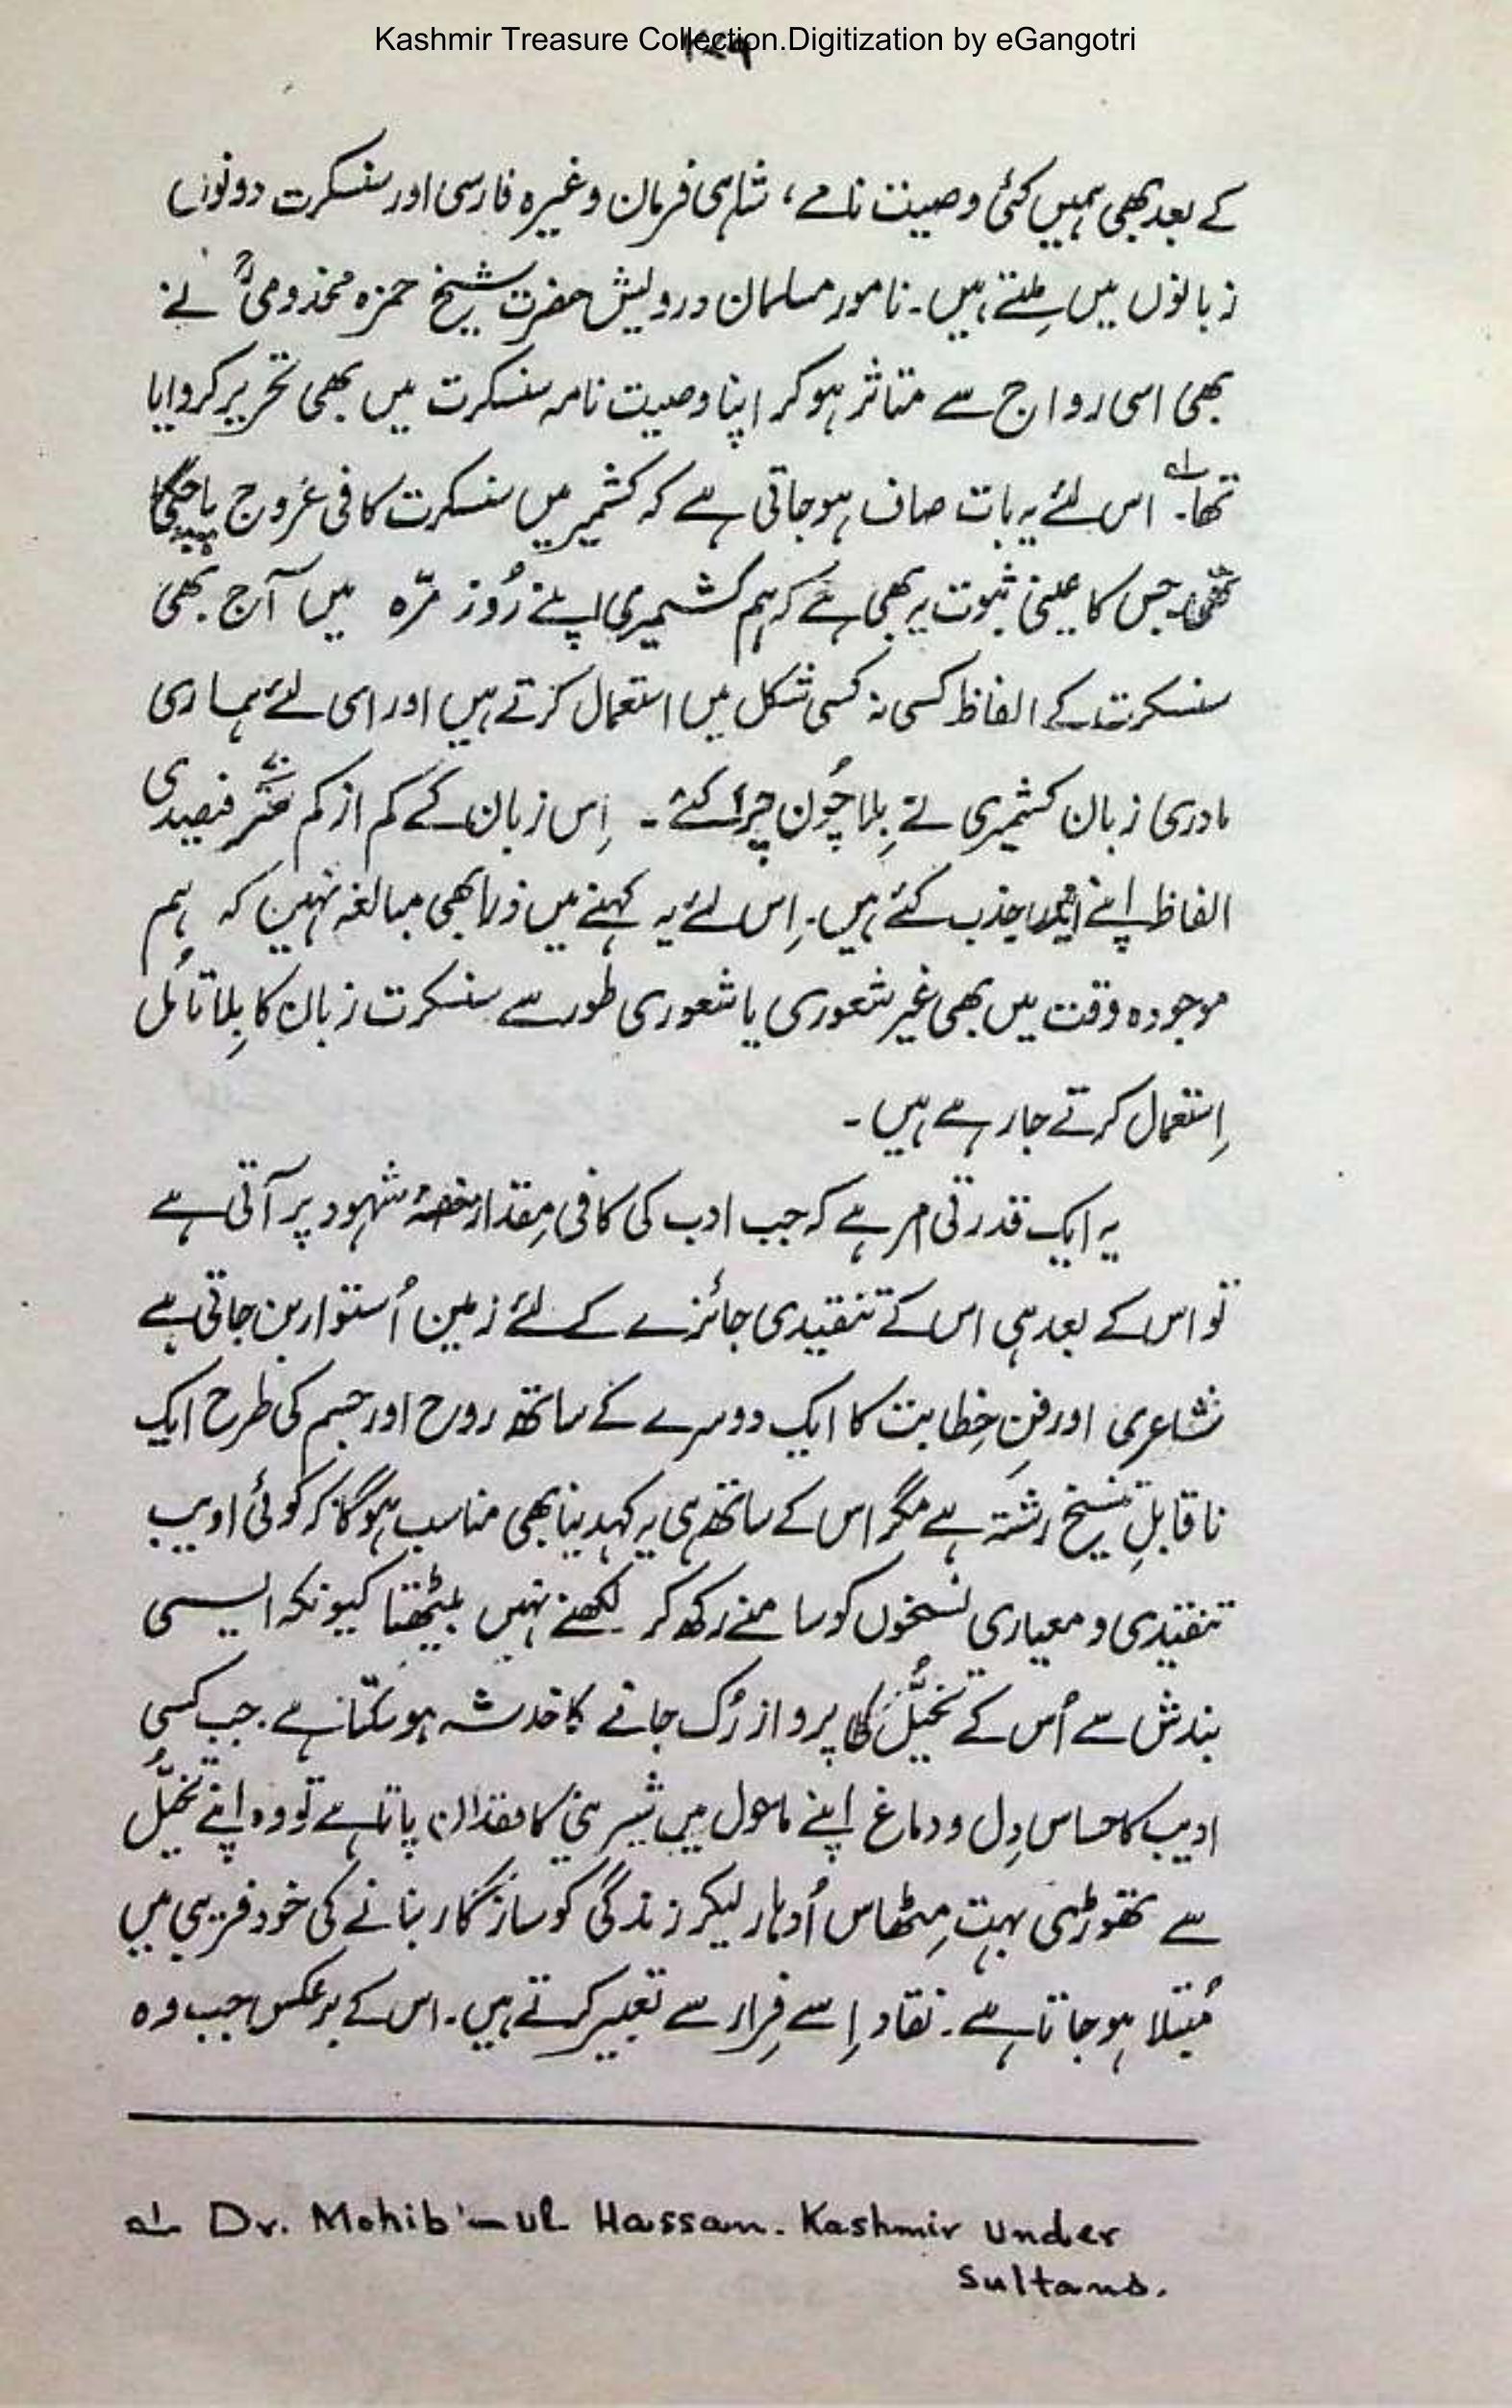 Kashmir Treasure Collection.Digitization by eGangotri
کے بعد بھی ہمیں کئی وصیت نامے، شاہی فرمان وغیرہ فارسی اور سنسکرت دونوں
زبانوں میں ملتے ہیں۔ نامور مسلمان درویش حضرت شیخ حمزہ مخدومیؒ نے
بھی اسی رواج سے متاثر ہو کر اپنا وصیت نامہ سنسکرت میں بھی تحریر کروایا
تھا۔؎۱ اس لئے یہ بات صاف ہو جاتی ہے کہ کشمیر میں سنسکرت کافی عروج پا چکی
تھی۔ جس کا عینی ثبوت یہ بھی ہے کہ ہم کشمیری اپنے رُوز مرّہ میں آج بھی
سنسکرت کے الفاظ کسی نہ کسی شکل میں استعمال کرتے ہیں اور اسی لئے ہماری
مادری زبان کشمیری نے بِلا چُون چرا کئے ۔ اِس زبان کے کم از کم ستّر فیصدی
الفاظ اپنے اندر جذب کئے ہیں۔ اِس لئے یہ کہنے میں ذرا بھی مبالغہ نہیں کہ ہم
موجودہ وقت میں بھی غیر شعوری یا شعوری طور سے سنسکرت زبان کا بِلا تاُمل
اِستعمال کرتے جا رہے ہیں ۔
یہ ایک قدرتی امر ہے کہ جب ادب کی کافی مِقدار منصۂ شہود پر آتی ہے
تو اس کے بعد ہی اس کے تنقیدی جائزے کے لئے زمین اُستوار بن جاتی ہے
شاعری اور فنِ خِطابت کا ایک دوسرے کے ساتھ روح اور جسم کی طرح ایک
ناقابلِ تنسیخ رشتہ ہے مگر اس کے ساتھ ہی یہ کہدینا بھی مناسب ہوگا کہ کوئی ادیب
تنقیدی و معیاری نسخوں کو سامنے رکھ کر لکھنے نہیں بیٹھتا کیونکہ ایسی
بندش سے اُس کے تخیُّل کا پرواز رُک جانے کا خدشہ ہو سکتا ہے. جب کسی
ادیب کا حساس دِل و دماغ اپنے ماحول میں شیرینی کا فقدان پاتا ہے تو وہ اپنے تخیُّل
سے تھوڑی بہت مِٹھاس اُدہار لیکر زندگی کو سازگار بنانے کی خود فریبی میں
مُبتلا ہو جاتا ہے۔ نقاد اِسے فِرار سے تعبیر کرتے ہیں۔ اس کے برعکس جب وہ
؎۱ Dr. Mohib'-ul Hassan. Kashmir under
Sultans.